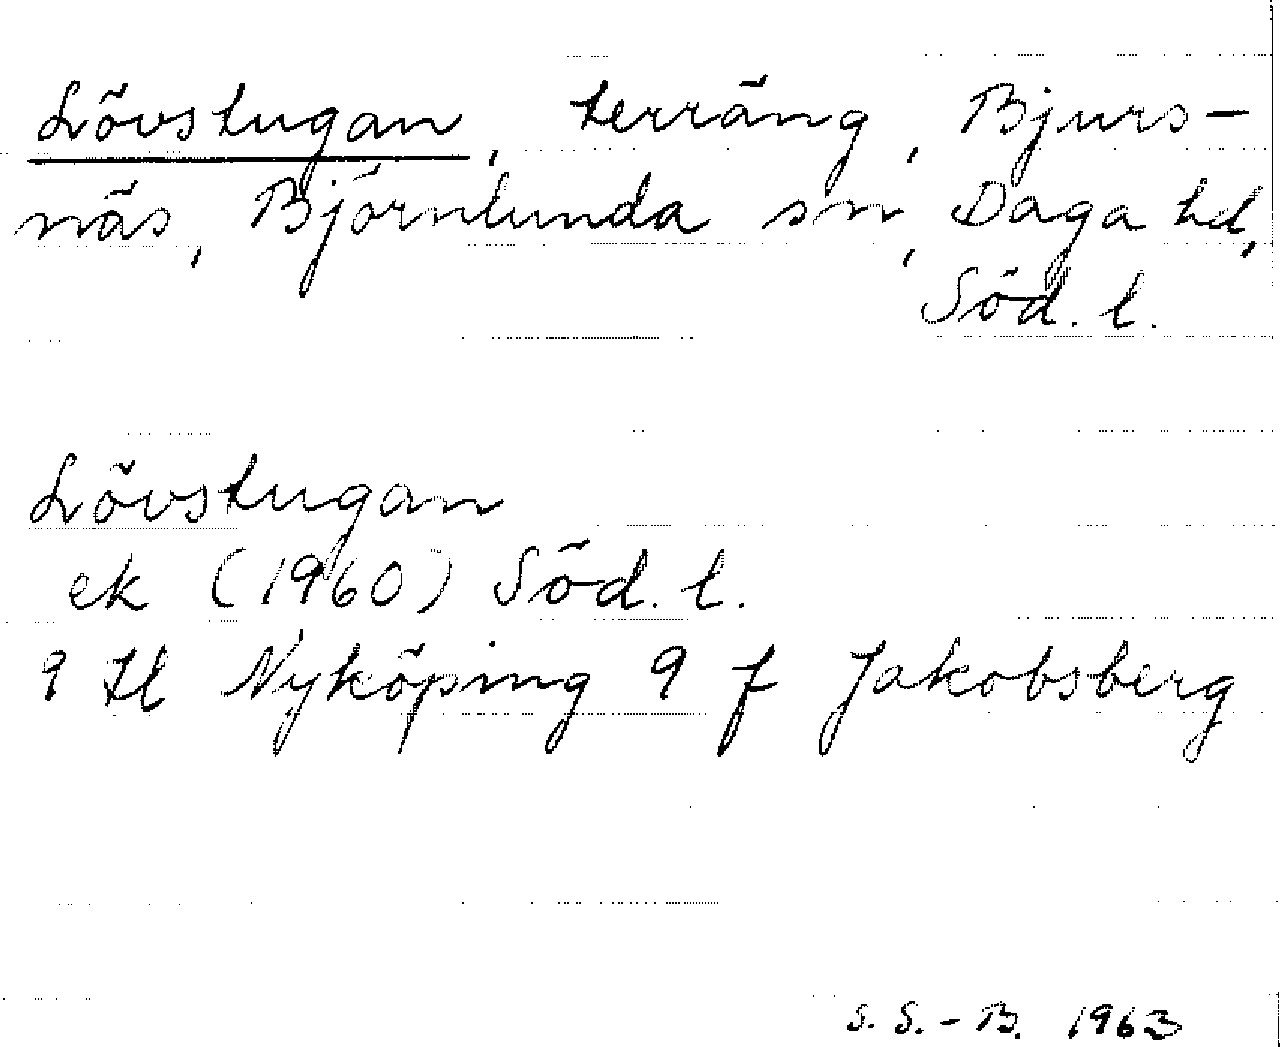 Lövstugan, terräng, Bjurs-
näs, Björnlunda sn, Daga hd,
Söd. l.
Lövstugan
ek (1960) Söd. l.
9 H Nyköping 9 f Jakobsberg
S. S.-B. 1963